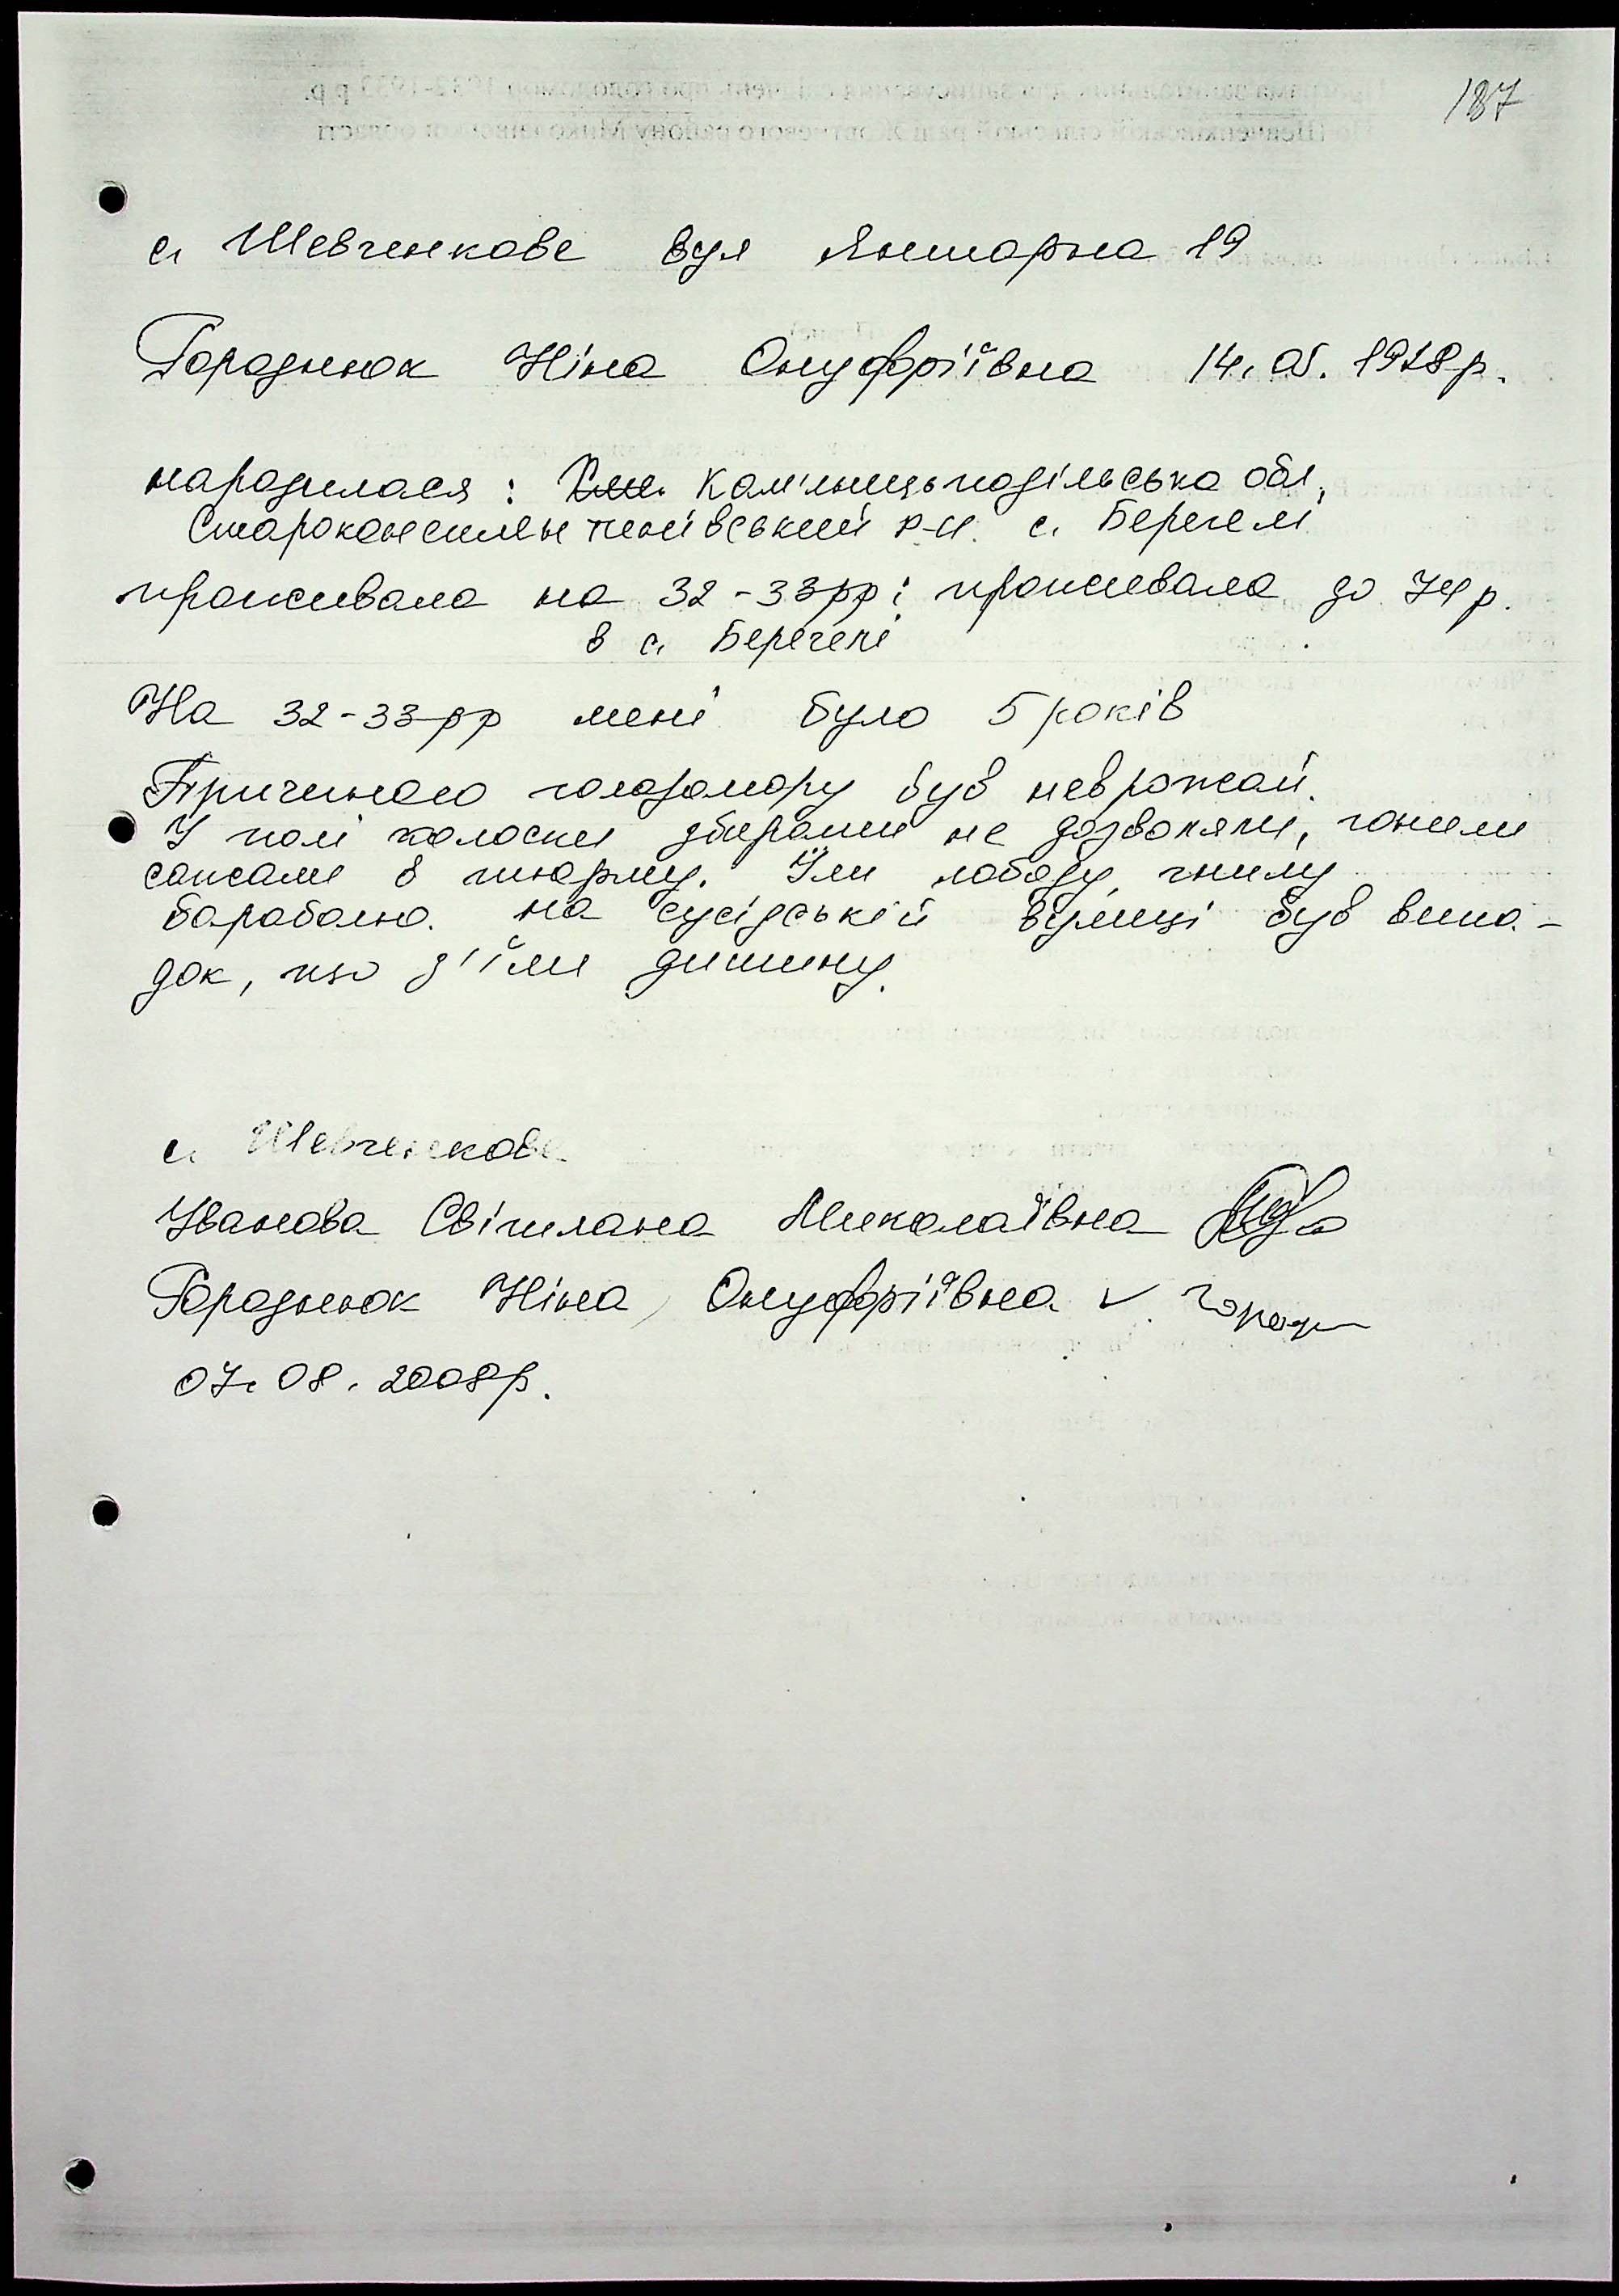 187
с. Шевченкове вул Янтарна 19
Городнюк Ніна Онуфріївна 14.05.1928р.
народилася: Кам'янецьподільська обл,
Староконстянтинівський р-н. с.Берегелі
проживала на 32-33рр: проживала до 74р.
в с. Берегелі
На 32-33рр мені було 5 років
Причиною голодомору був неврожай.
У полі колоски збирати не дозволяли, гонили
сажали в тюрму. Їли лободу, гнилу
бараболю. на сусідській вулиці був випа-
док, що з'їли дитину.
с. Шевченкове
Іванова Світлана Миколаївна
Городнюк Ніна Онуфріївна v
07.08.2008р.